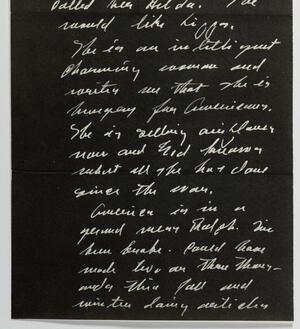 called her Hilda. I'd
would like
She is an intelligent
charming woman and
writes me that she is
hungry for Americans.
She is selling airplanes
now and God knows
what all she has done
since the war.
America is in a
mess Ralph. I've
been broke. Could have
made two or three thous-
ands this fall and
winter doing articles